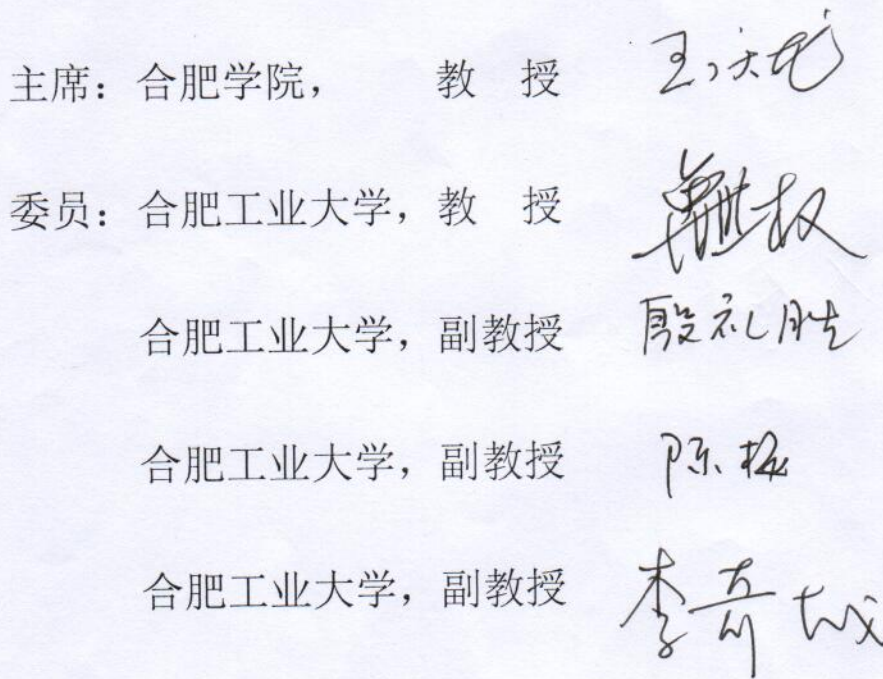 主席：合肥学院， 教 授 王庆龙
委员：合肥工业大学，教 授
合肥工业大学，副教授 殷礼胜
合肥工业大学，副教授 陈梅
合肥工业大学，副教授 李奇越